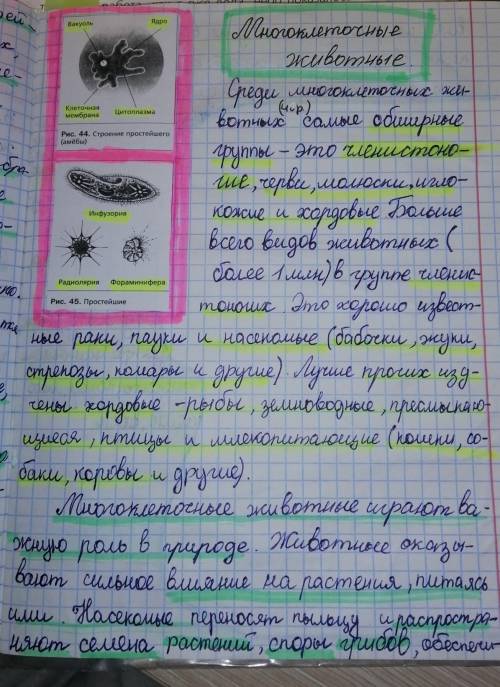 Вакуоль Ядро
Клеточная мембрана Цитоплазма
Рис. 44. Строение простейшего
(амёбы)
Инфузория
Радиолярия Фораминифера
Рис. 45. Простейшие
Многоклеточные
животные.
Среди многоклеточных жи-
вотных (н-р) самые обширные
группы - это членистоно-
гие, черви, молюски, игло-
кожие и хордовые Больше
всего видов животных (
более 1 млн) в группе членис-
тоногих. Это хорошо извест-
ные раки, пауки и насекомые (бабочки, жуки,
стрекозы, комары и другие). Лучше прочих изу-
чены хордовые - рыбы, земноводные, пресмыкаю-
щиеся, птицы и млекопитающие (кошки, со-
баки, коровы и другие).
Многоклеточные животные играют ва-
жную роль в природе. Животные оказы-
вают сильное влияние на растения, питаясь
ими. Насекомые переносят пыльцу и распростра-
няют семена растений, споры грибов, обеспечи-